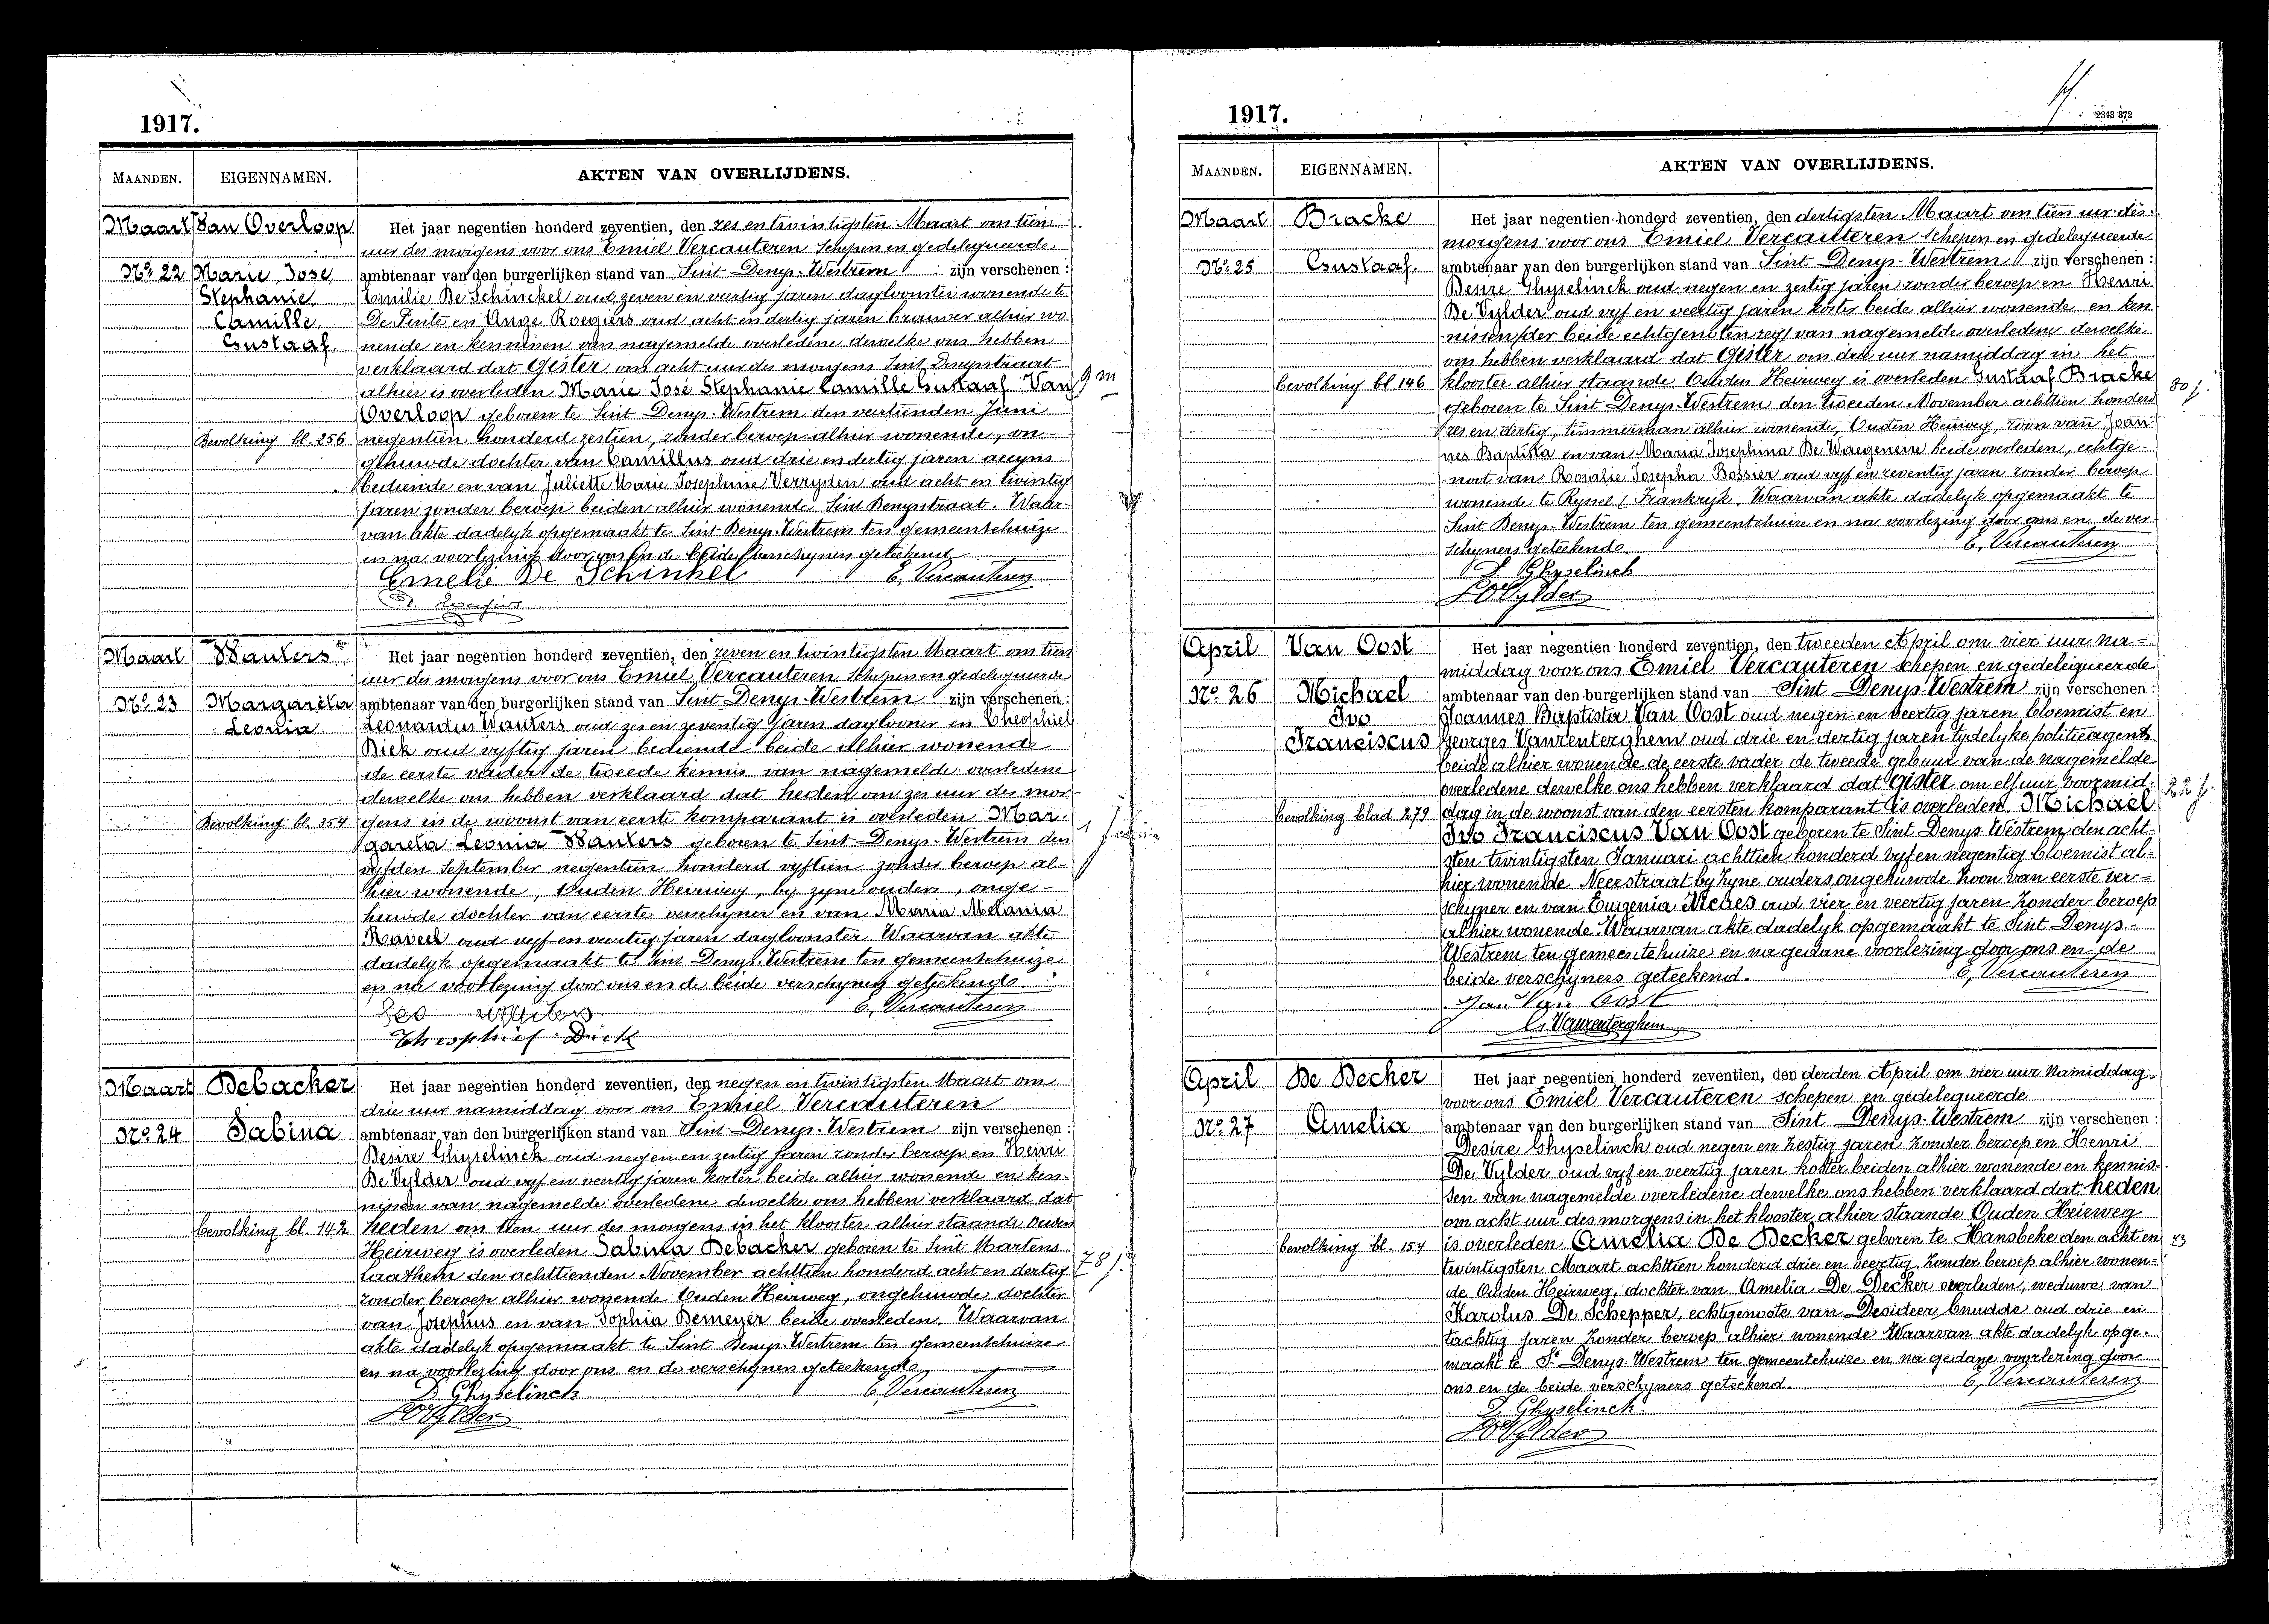 1917.
MAANDEN. EIGENNAMEN. AKTEN VAN OVERLIJDENS.
Maart Van Overloop Het jaar negentien honderd zeventien, den zes en twintigsten Maart om tien
uur des morgens voor ons Emiel Vercauteren schepen en gedelegueerde
No 22 Marie, Jose, ambtenaar van den burgerlijken stand van Sint Denys-Westrem zijn verschenen :
Stephanie Emilie De Schinckel oud zeven en veertig jaren dagloonster wonende te
Camille De Pinte en Ange Roegiers oud acht en dertig jaren brouwer alhier wo
Gustaaf. nende en kennissen van nagemelde overledene dewelke ons hebben
verklaard dat Gister om acht uur des morgens Sint Denysstraat
alhier is overleden Marie José Stephanie Camille Gustaaf Van 9 m
Overloop geboren te Sint Denys-Westrem den veertienden Juni
Bevolking bl. 256 negentien honderd zestien, zonder beroep alhier wonende, on-
gehuwde dochter van Camillus oud drie en dertig jaren accyns
bediende en van Juliette Marie Josephine Verryden oud acht en twintig
jaren zonder beroep beiden alhier wonende Sint Denysstraat. Waar-
van akte dadelyk opgemaakt te Sint Denys-Westrem ten gemeentehuize
en na voorlezing door ons en de beide verschyners geteekend
Emelie De Schinkel E. Vercauteren
Maart Wauters Het jaar negentien honderd zeventien, den zeven en twintigsten Maart om tien
uur des morgens voor ons Emiel Vercauteren Schepen en gedelegueerde
No 23 Margareta ambtenaar van den burgerlijken stand van Sint Denys-Westrem zijn verschenen :
Leonia Leonardus Wauters oud zes en zeventig jaren daglooner en Theophiel
Dick oud vyftig jaren bediende beide alhier wonende
de eerste vader de tweede kennis van nagemelde overledene
dewelke ons hebben verklaard dat heden om zes uur des mor-
Bevolking bl. 354 gens in de woonst van eerste komparant is overleden Mar-
gareta Leonia Wauters geboren te Sint Denys-Westrem den
vyfden September negentien honderd vyftien zonder beroep al-
hier wonende, Ouden Heirweg, by zyne ouders, onge-
huwde dochter van eerste verschyner en van Maria Melania
Raveel oud vyf en veertig jaren dagloonster Waarvan akte
dadelyk opgemaakt te Sint Denys-Westrem ten gemeentehuize
en na voorlezing door ons en de beide verschyners geteekend.
Leo Wauters E. Vercauteren
Theophiel Dick
Maart Debacker Het jaar negentien honderd zeventien, den negen en twintigsten Maart om
drie uur namiddag voor ons Emiel Vercauteren
No 24 Sabina ambtenaar van den burgerlijken stand van Sint Denys-Westrem zijn verschenen :
Desire Ghyselinck oud negen en zestig jaren zonder beroep en Henri
De Vylder oud vyf en veertig jaren koster beide alhier wonende en ken-
nissen van nagemelde overledene dewelke ons hebben verklaard dat
bevolking bl. 142 heden om tien uur des morgens in het klooster alhier staande Ouden
Heirweg is overleden Sabina Debacker geboren te Sint Martens
Laathem den achttienden November achttien honderd acht en dertig 78 j.
zonder beroep alhier wonende Ouden Heirweg, ongehuwde dochter
van Josephus en van Sophia Demeyer beide overleden. Waarvan
akte dadelyk opgemaakt te Sint Denys-Westrem ten gemeentehuize
en na voorlezing door ons en de verschyners geteekend
D. Ghyselinck E. Vercauteren
HDVylder
1917.
2343 372
MAANDEN. EIGENNAMEN. AKTEN VAN OVERLIJDENS.
Maart Bracke Het jaar negentien honderd zeventien, den dertigsten Maart om tien uur des
morgens voor ons Emiel Vercauteren schepen en gedelegueerde
No 25 Gustaaf. ambtenaar van den burgerlijken stand van Sint Denys-Westrem zijn verschenen :
Desire Ghyselinck oud negen en zestig jaren zonder beroep en Henri
De Vylder oud vyf en veertig jaren koster beide alhier wonende en ken
nissen van nagemelde overledene dewelke
ons hebben verklaard dat Gister om drie uur namiddag in het
bevolking bl 146 klooster alhier staande Ouden Heirweg is overleden Gustaaf Bracke 80 j.
geboren te Sint Denys-Westrem den tweeden November achttien honderd
zes en dertig, timmerman alhier wonende, Ouden Heirweg, zoon van Joan-
nes Baptista en van Maria Josephina De Waegeneire beide overleden, echtge-
noot van Rosalie Josepha Bossier oud vyf en zeventig jaren zonder beroep
wonende te Ryssel (Frankryk. Waarvan akte dadelyk opgemaakt te
Sint Denys-Westrem ten gemeentehuize en na voorlezing door ons en de ver-
schyners geteekend. E. Vercauteren
D Ghyselinck
HDVylder
April Van Oost Het jaar negentien honderd zeventien, den tweeden April om vier uur na=
middag voor ons Emiel Vercauteren schepen en gedelegueerde
No 26 Michael ambtenaar van den burgerlijken stand van Sint Denys-Westrem zijn verschenen :
Ivo Joannes Baptista Van Oost oud negen en veertig jaren bloemist en
Franciscus Georges Vanrenterghem oud drie en dertig jaren tydelyke politieagent
beide alhier wonende de eerste vader de tweede gebuur van de nagemelde
overledene dewelke ons hebben verklaard dat gister om elf uur voormid- 22 j.
bevolking blad 279 dag in de woonst van den eersten komparant is overleden Michael
Ivo Franciscus Van Oost geboren te Sint Denys Westrem den acht-
sten twintigsten Januari achttien honderd vyf en negentig bloemist al-
hier wonende Neerstraat by zyne ouders ongehuwde zoon van eerste ver=
schyner en van Eugenia Neches oud vier en veertig jaren zonder beroep
alhier wonende. Waarvan akte dadelyk opgemaakt te Sint Denys-
Westrem ten gemeentehuize en na gedane voorlezing door ons en de
beide verschyners geteekend. E. Vercauteren
Jan Van Oost
G. Vanrenterghem
April De Decker Het jaar negentien honderd zeventien, den derden April om vier uur namiddag
voor ons Emiel Vercauteren schepen en gedelegueerde
No 27 Amelia ambtenaar van den burgerlijken stand van Sint Denys-Westrem zijn verschenen :
Desire Ghyselinck oud negen en zestig jaren zonder beroep en Henri
De Vylder oud vyf en veertig jaren koster beiden alhier wonende en kennis-
sen van nagemelde overledene dewelke ons hebben verklaard dat heden
om acht uur des morgens in het klooster alhier staande Ouden Heirweg
bevolking bl. 154 is overleden Amelia De Decker geboren te Hansbeke den acht en 73
twintigsten Maart achttien honderd drie en veertig zonder beroep alhier wonen=
de Ouden Heirweg, dochter van Amelia De Decker overleden, weduwe van
Karolus De Schepper, echtgenoote van Desideer Cnudde oud drie en
tachtig jaren zonder beroep alhier wonende Waarvan akte dadelyk opge-
maakt te St Denys-Westrem ten gemeentehuize en na gedane voorlezing door
ons en de beide verschyners geteekend. E. Vercauteren
D. Ghyselinck
HDVylder